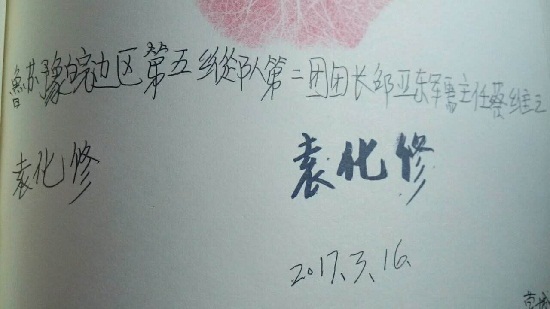 鲁苏豫皖边区第五纵队第二团团长邱亚东军需主任蔡维之
袁化修
袁化修
2017.3.16.